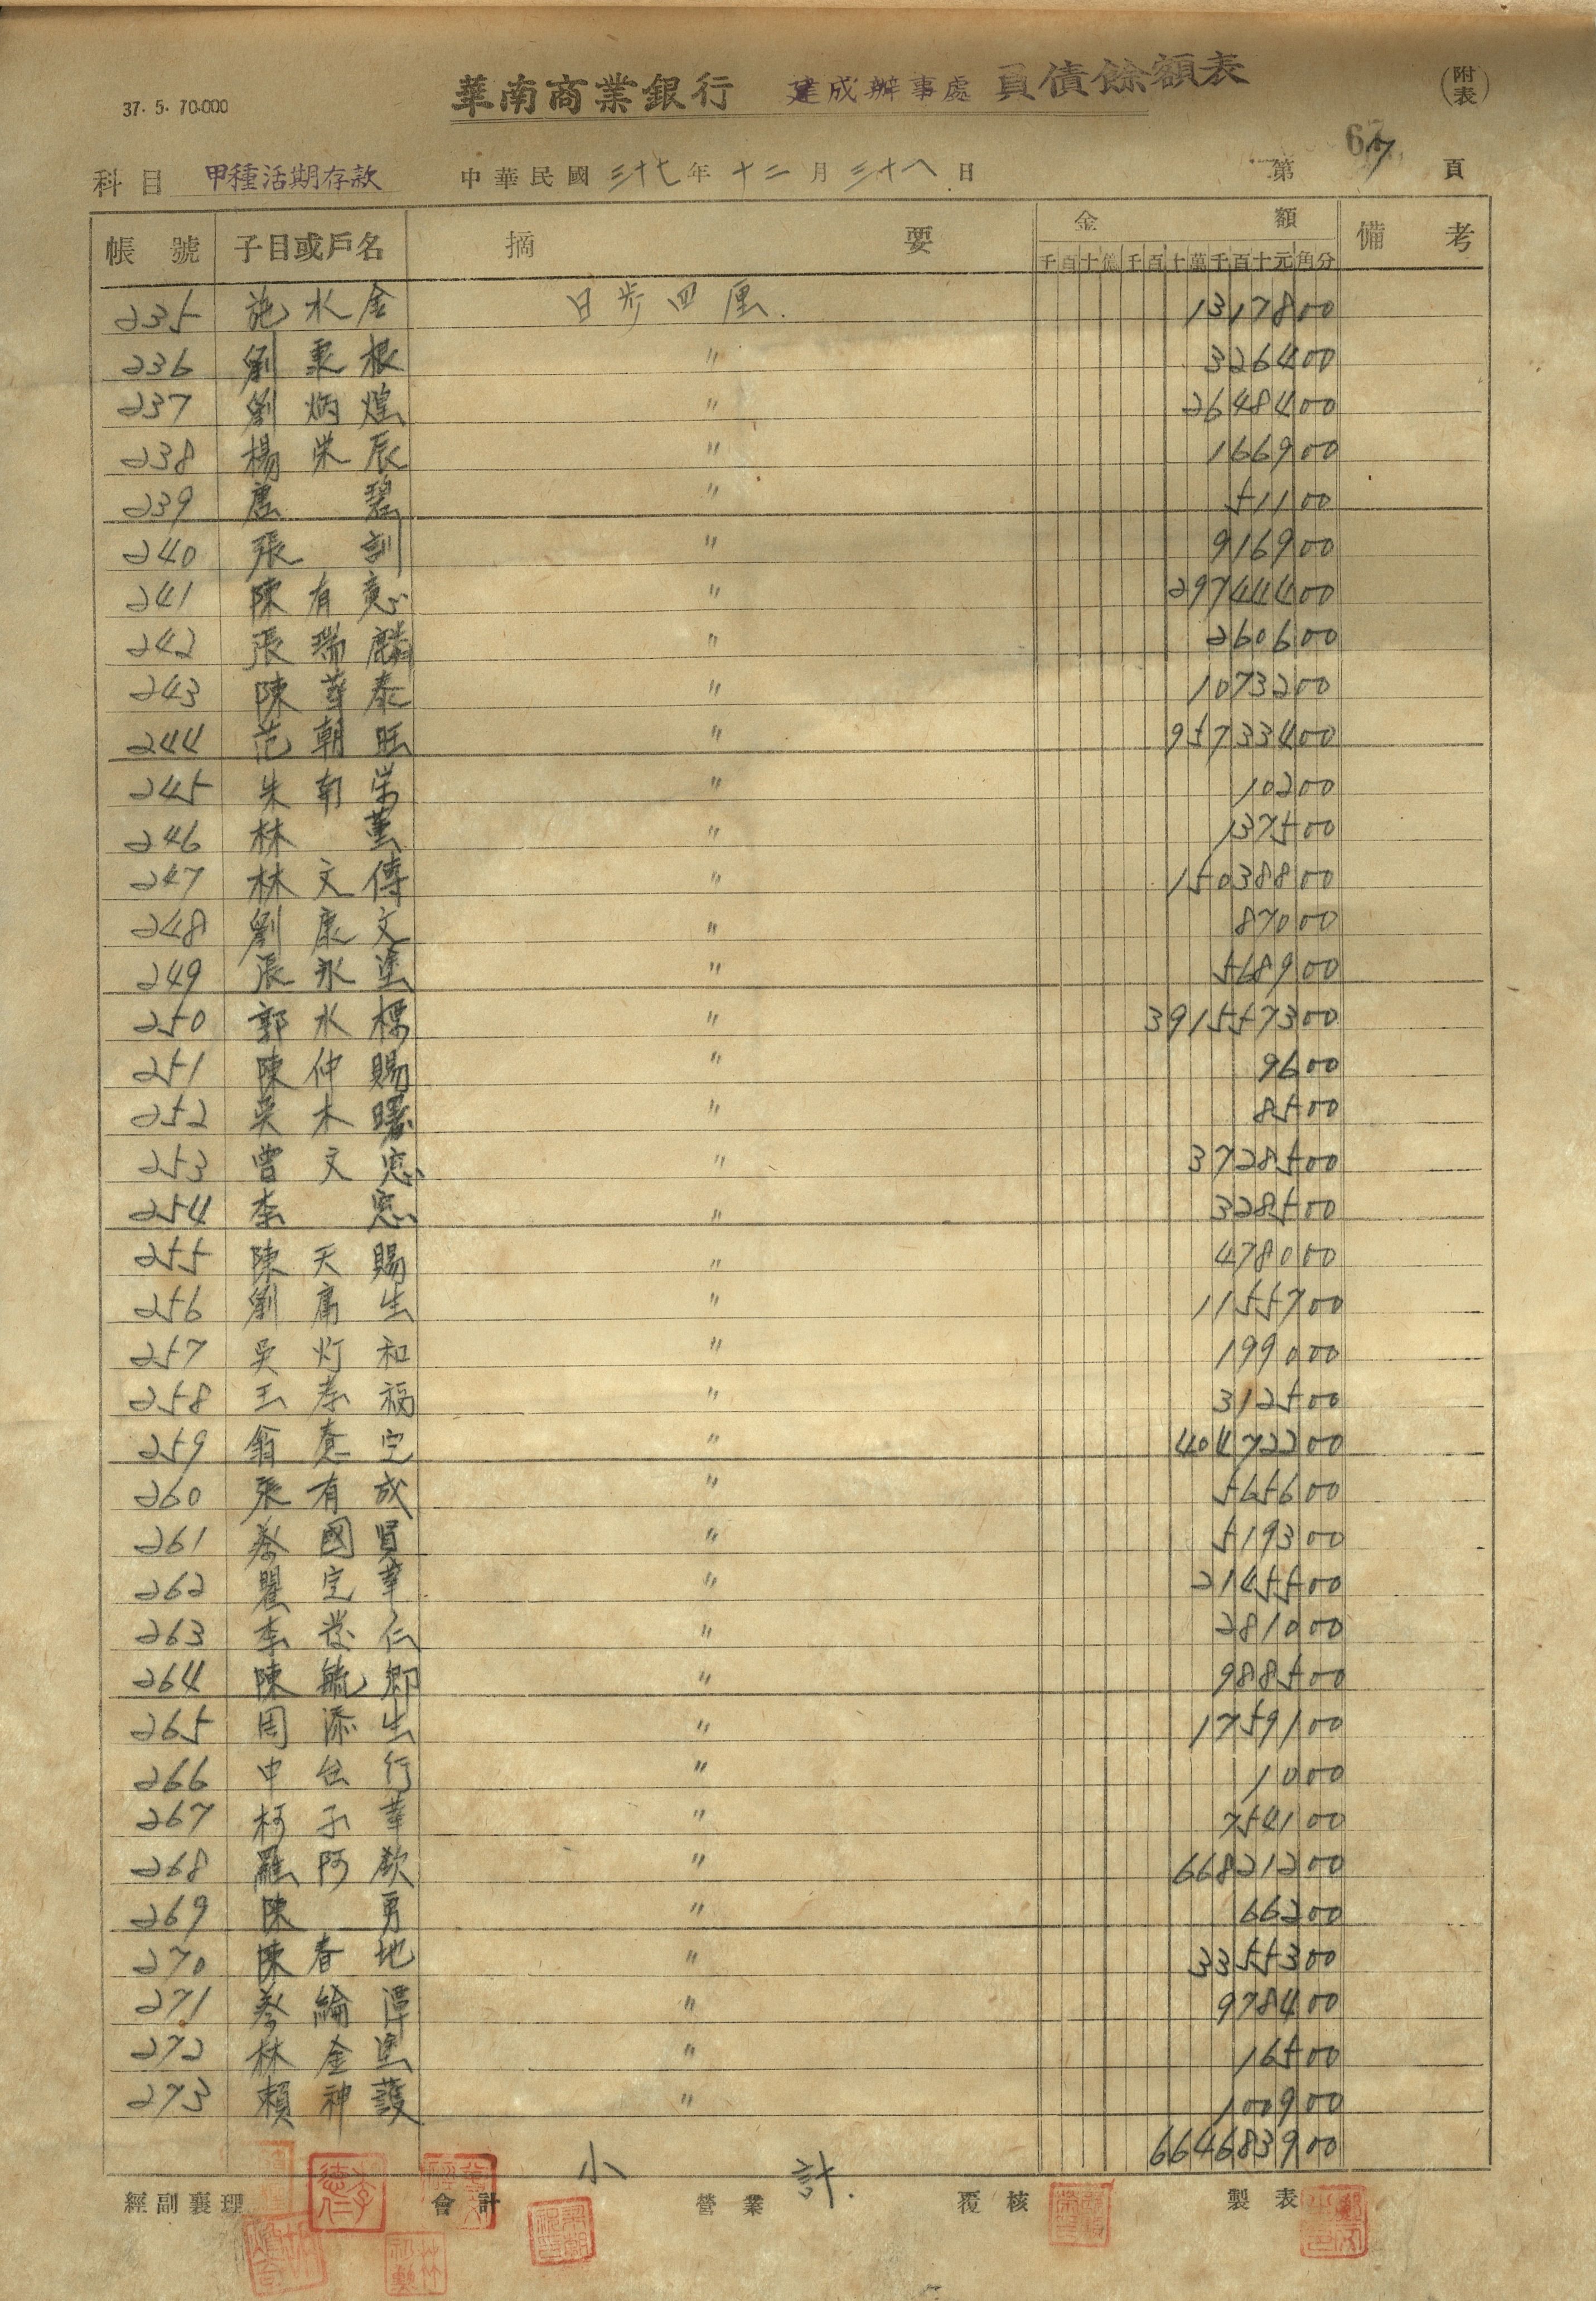 37. 5. 70.000
華南商業銀行 建成辦事處 負債餘額表 (附表)
科目 甲種活期存款 中華民國 三十七 年 十二 月 三十八 日 第 67 頁
帳號 子目或戶名 摘要 金額 備考
千百十億千百十萬千百十元角分
235 施水金 日步四厘. 1317800
236 劉秉根 〃 326400
237 劉炳煌 〃 2648400
238 楊栄辰 〃 166900
239 唐碧 〃 51100
240 張訓 〃 916900
241 陳有意 〃 29744400
242 張瑞麟 〃 260600
243 陳華泰 〃 1073200
244 范朝旺 〃 95733400
245 朱朝栄 〃 10200
246 林薰 〃 137500
247 林文傳 〃 15038800
248 劉康文 〃 87000
249 張永塗 〃 568900
250 郭水標 〃 391557300
251 陳仲賜 〃 9600
252 吳木曙 〃 8500
253 曾文忠 〃 3728500
254 李窓 〃 328500
255 陳天賜 〃 478000
256 劉庸生 〃 1155700
257 吳灯和 〃 199000
258 王孝福 〃 312500
259 翁意定 〃 40472200
260 張有成 〃 565600
261 蔡國賢 〃 519300
262 瞿定華 〃 2145500
263 李發仁 〃 281000
264 陳毓卿 〃 988500
265 周添生 〃 1759100
266 中台行 〃 1000
267 柯子華 〃 754100
268 羅阿欽 〃 66821200
269 陳勇 〃 66200
270 陳春地 〃 3355300
271 蔡綸潭 〃 978400
272 林金塗 〃 16500
273 賴神護 〃 100900
小計. 664683900
經副襄理 會計 營業 覆核 製表